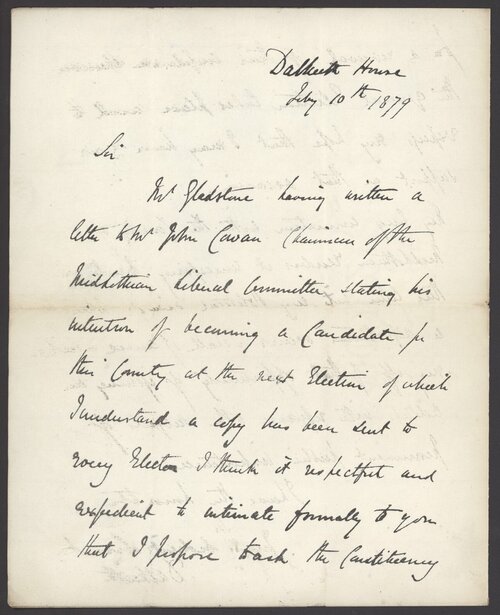 Dalkeith House
Feby 10th 1879
Sir
Mr Gladstone having written a
letter to Mr John Cowan Chairman of the
Midlothian Liberal Committee stating his
intention of becoming a Candidate for
this County at the next Election of which
I understand a copy has been sent to
every Elector I think it respectful and
expedient to intimate formally to you
that I propose to ask the Constituency